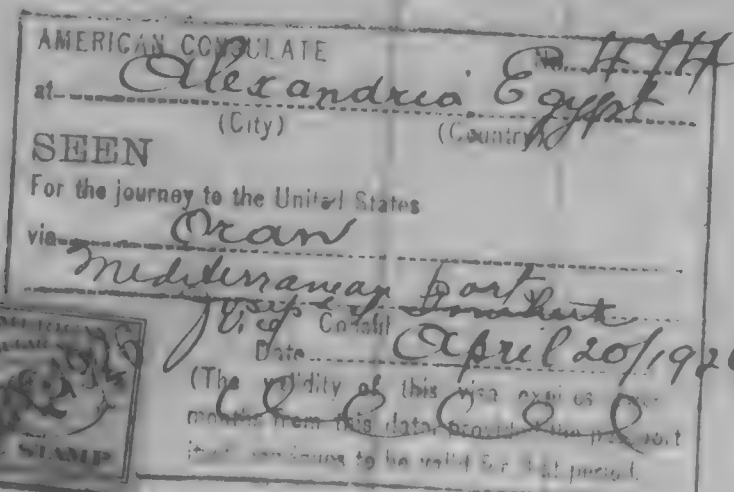 AMERICAN CONSULATE No.
at Alexandria Egypt
(City) (Country)
SEEN
For the journey to the United States
via Oran
Mediterranean port
Vice Consul
Date April 20/192
(The validity of this visa expires
months from this date, provided the passport
continues to be valid for that period.
STAMP